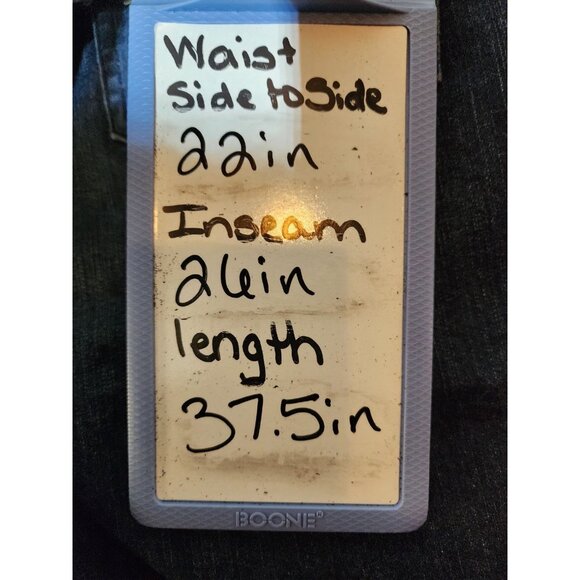 Waist
Side to Side
22in
Inseam
26in
length
37.5in
BOONE®